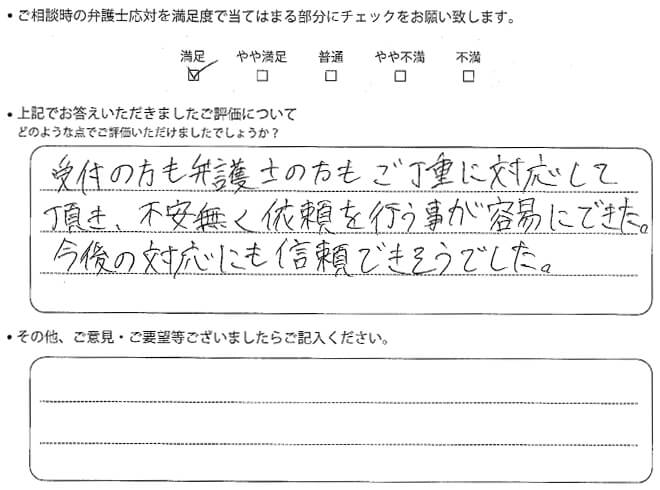 ・ご相談時の弁護士応対を満足度で当てはまる部分にチェックをお願い致します。
満足 やや満足 普通 やや不満 不満
☑ ☐ ☐ ☐ ☐
・上記でお答えいただきましたご評価について
どのような点でご評価いただけましたでしょうか?
受付の方も弁護士の方もご丁重に対応して
頂き、不安無く依頼を行う事が容易にできた。
今後の対応にも信頼できそうでした。
・その他、ご意見・ご要望等ございましたらご記入ください。